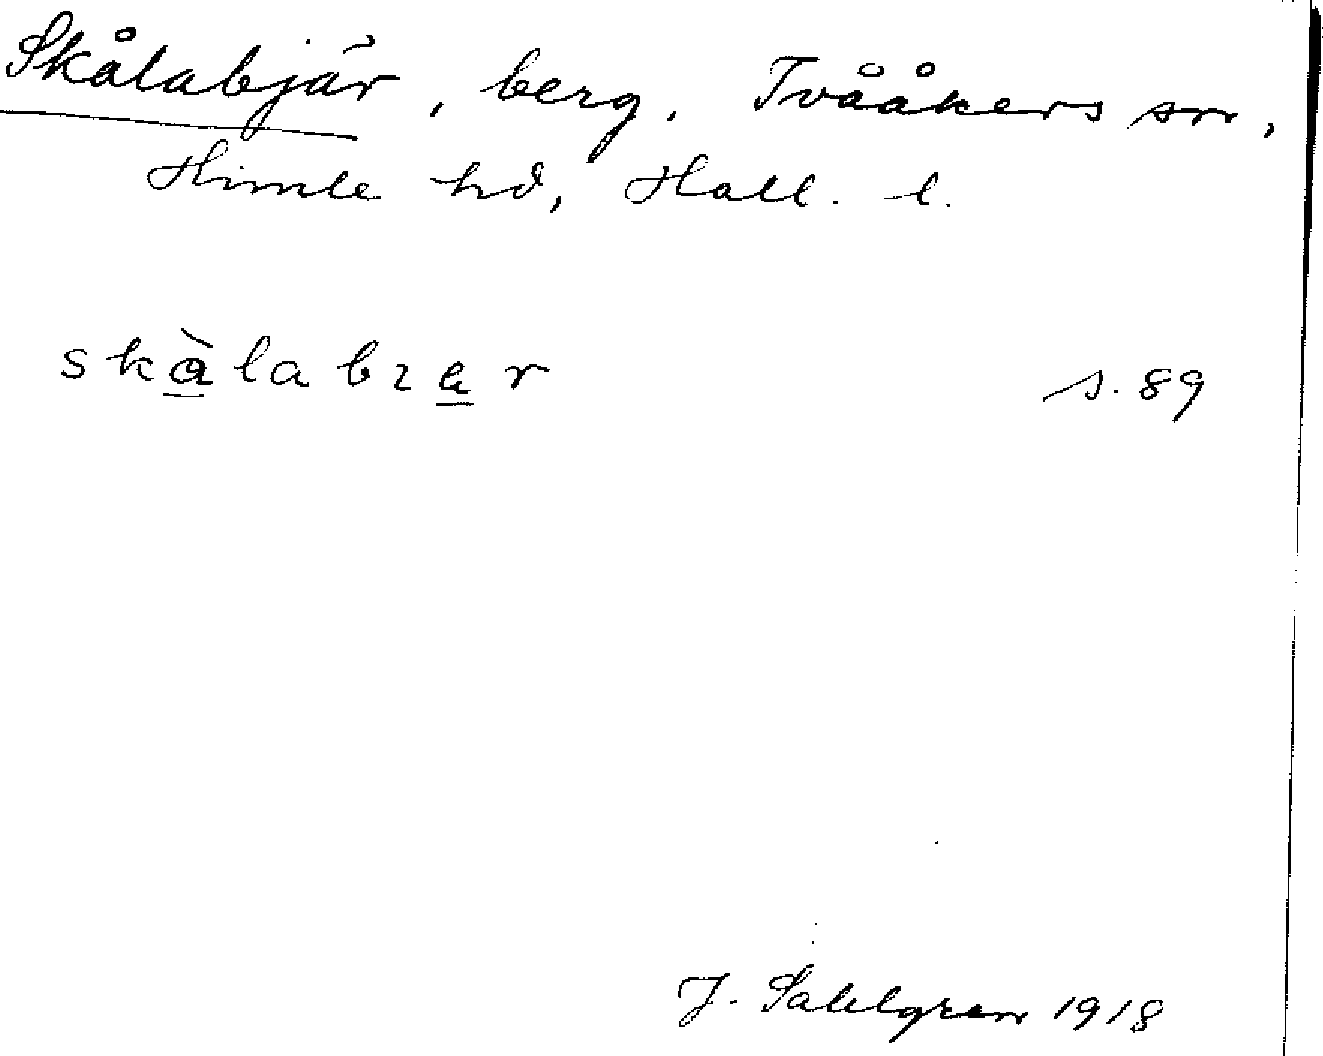 Skålabjär, berg, Tvååkers sn,
Himle hd, Hall. l.
skàlabɿar s. 89
J. Sahlgren 1918